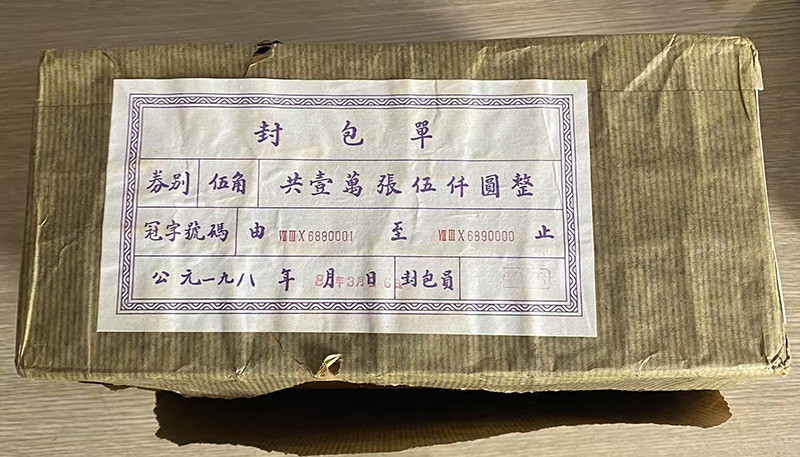 封包單
券別 伍角 共壹萬張伍仟圓整
冠字號碼 由 ⅧⅢⅩ6880001 至 ⅧⅢⅩ6890000 止
公元一九八 年 月 日 8 年3月 6 封包員